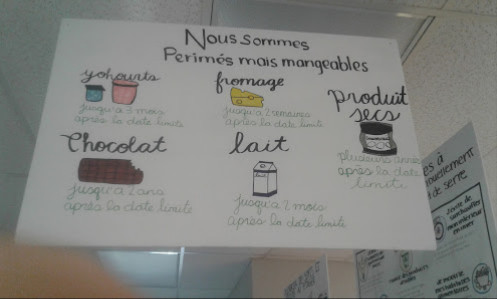 Nous sommes
Perimés mais mangeables
yohourts
jusqu'a 3 mois
après la date limite
fromage
jusqu'a 2 semaines
après la date limite
Produit
secs
plusieurs années
après la date
limite
Chocolat
jusqu'a 2 ans
après la date limite
lait
jusqu'a 2 mois
après la date limite
de serre